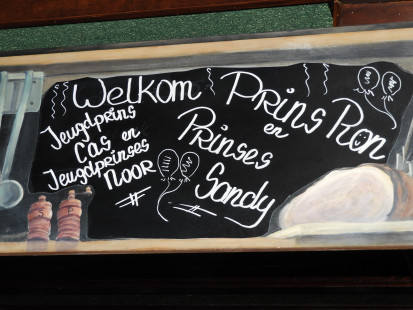 Welkom Prins Ron
Jeugdprins
Cas en
Jeugdprinses
Noor
en
Prinses
Sandy